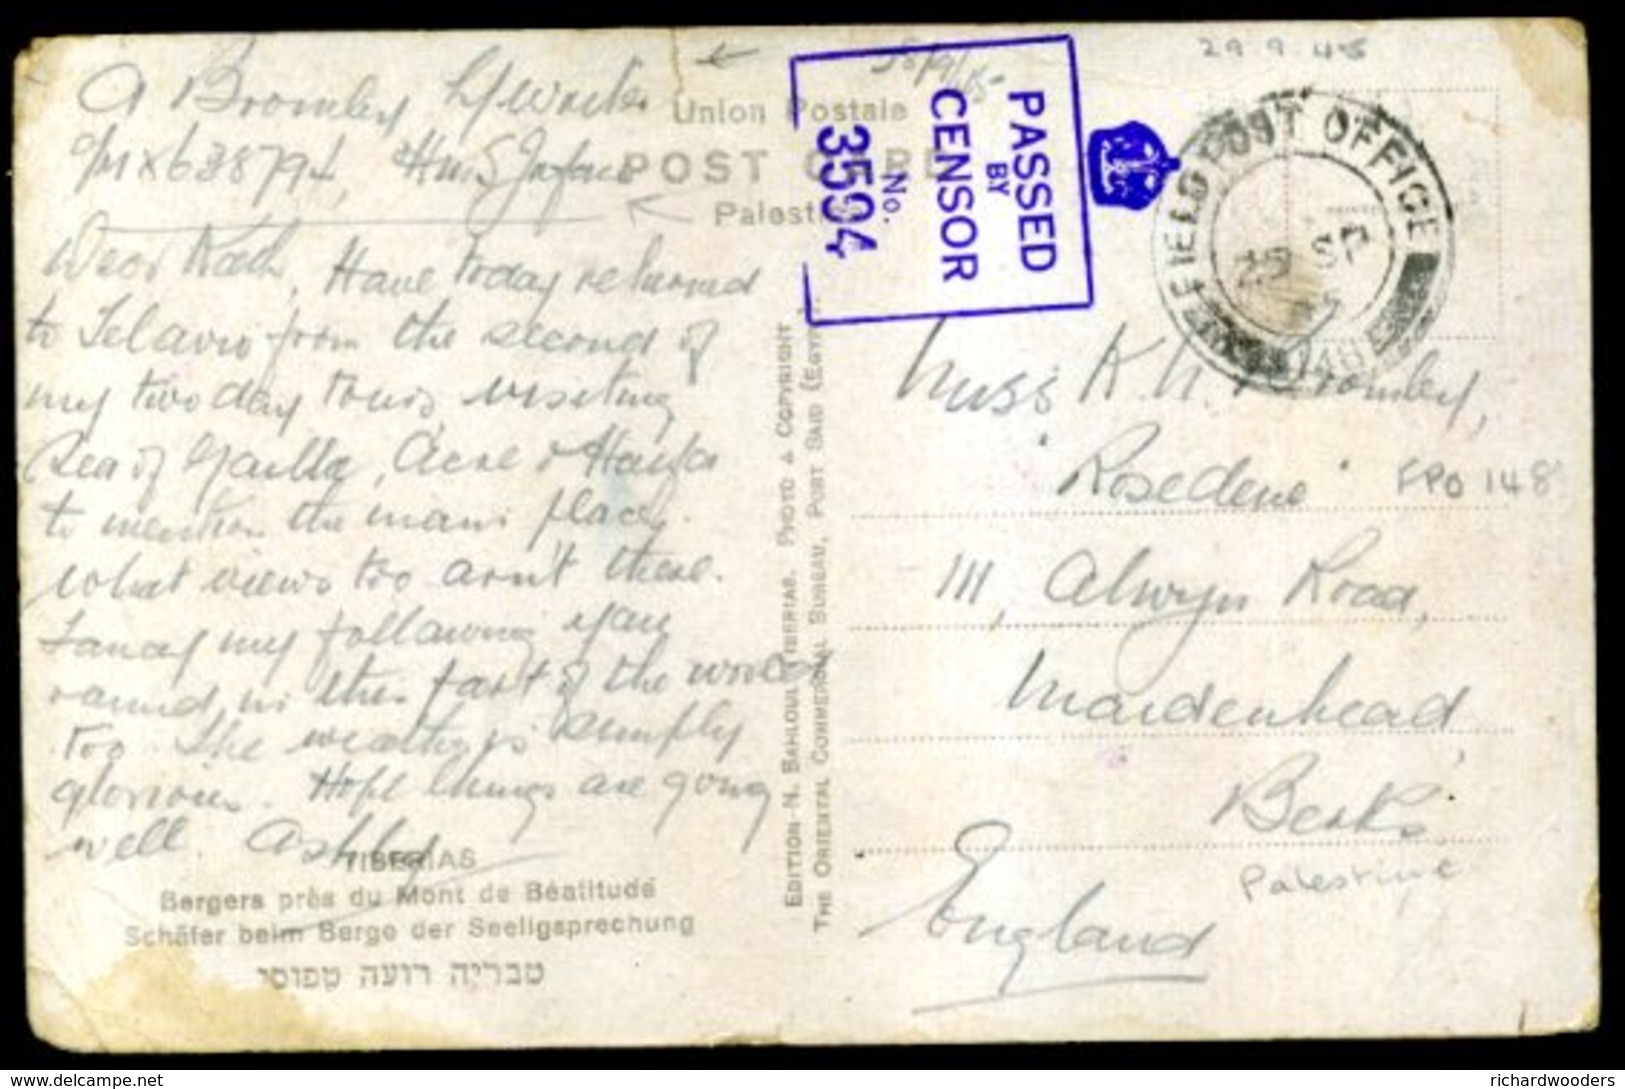 A Bromley
P/MX638794, HMS
Dear Kath, Have today returned
to Telaviv from the second of
my two day tours, visiting
Sea of Gaille, Acre & Haifa
to mention the main places.
what views too arn't these.
Fancy my following you
round in this part of the world
too. The weather is simply
glorious. Hope things are going
well. Ashley
TIBERIAS
Bergers près du Mont de Béatitude
Schäfer beim Berge der Seeligsprechung
טבריה רועה טפוסי
Union Postale
POST CARD
Palest
EDITION-N. BAHLOUL TIBERIAS. PHOTO & COPYRIGHT
THE ORIENTAL COMMERCIAL BUREAU, PORT SAID (EGYPT)
PASSED
BY
CENSOR
No.
3594
29.9.45
FIELD POST OFFICE
29 SP
45
148
Miss K. Bromley,
Rosedene
FPO 148
111, Alwyn Road,
Maidenhead,
Berks
Palestine
England
delcampe.net
richardwooders